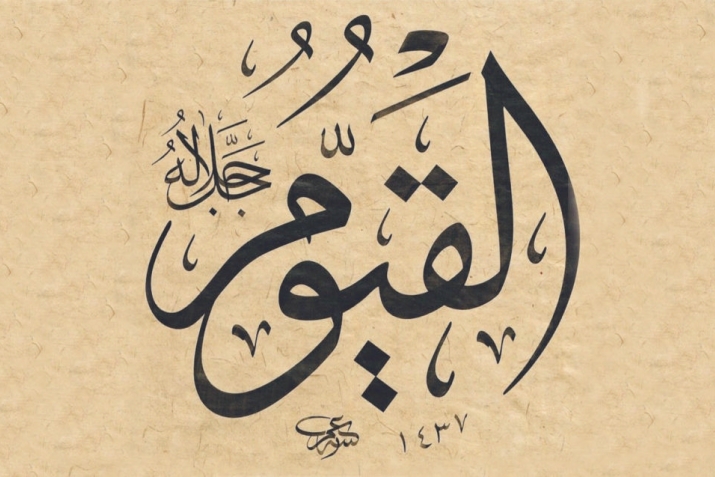 القيّوم
جلّ جلاله
١٤٣٧